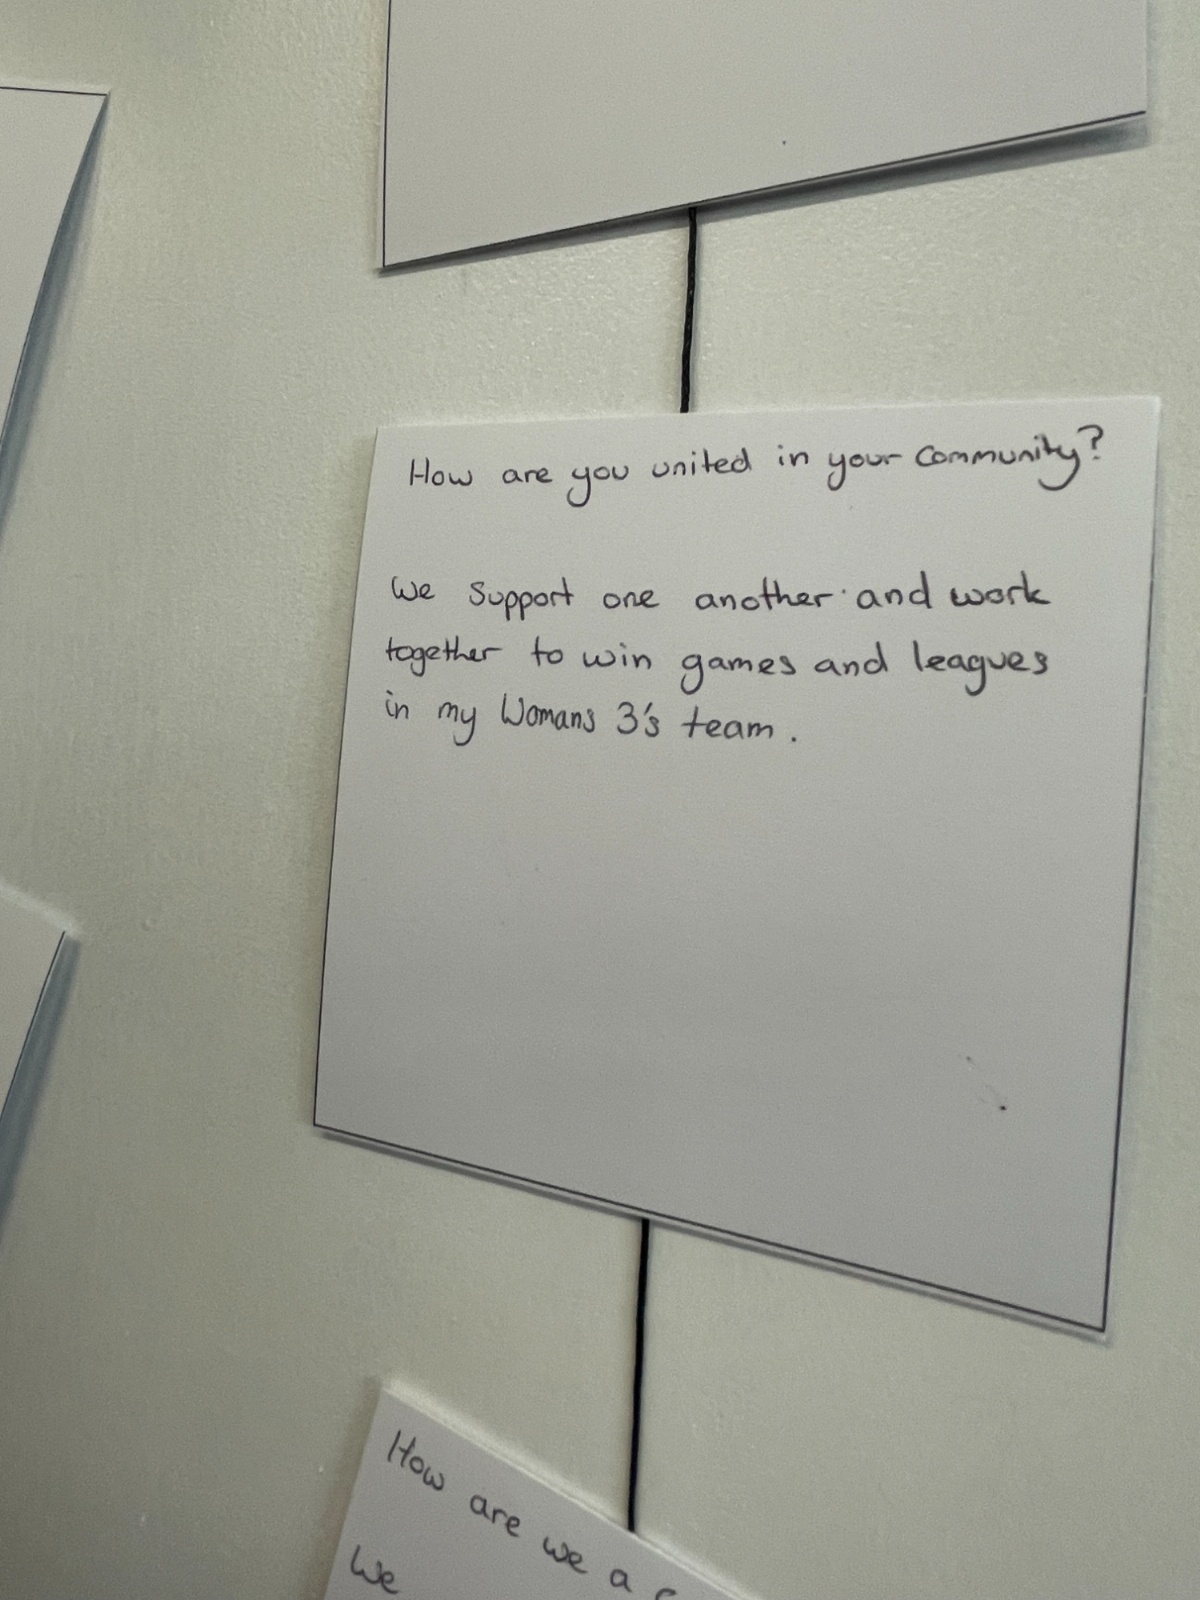 How are you united in your community?
We support one another and work
together to win games and leagues
in my Womans 3's team.
How are we a
We